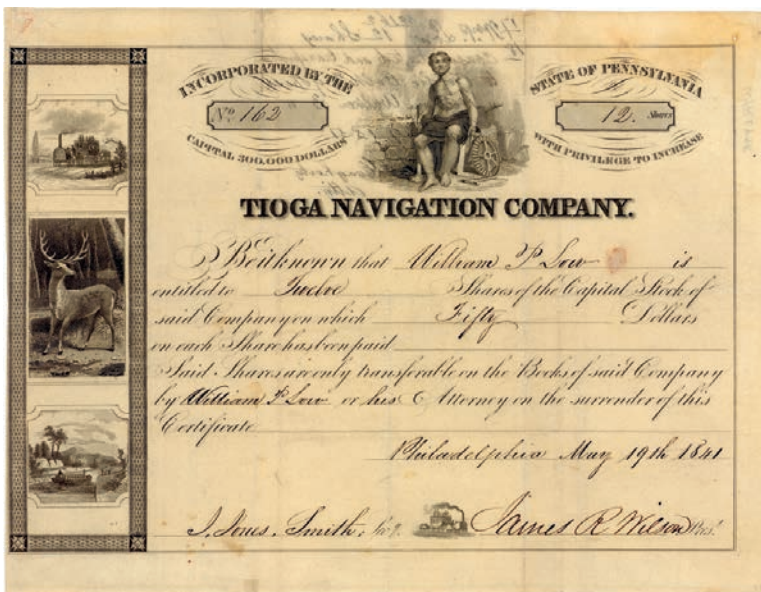 INCORPORATED BY THE
No. 162
CAPITAL 300,000 DOLLARS
STATE OF PENNSYLVANIA
12. Shares
WITH PRIVILEGE TO INCREASE
TIOGA NAVIGATION COMPANY.
Be it known that William P Low is
entitled to Twelve Shares of the Capital Stock of
said Company on which Fifty Dollars
on each Share has been paid
Said Shares are only transferable on the Books of said Company
by William P Low or his Attorney on the surrender of this
Certificate
Philadelphia May 19th 1841
J. Jones. Smith, James R Wilson Pres.t